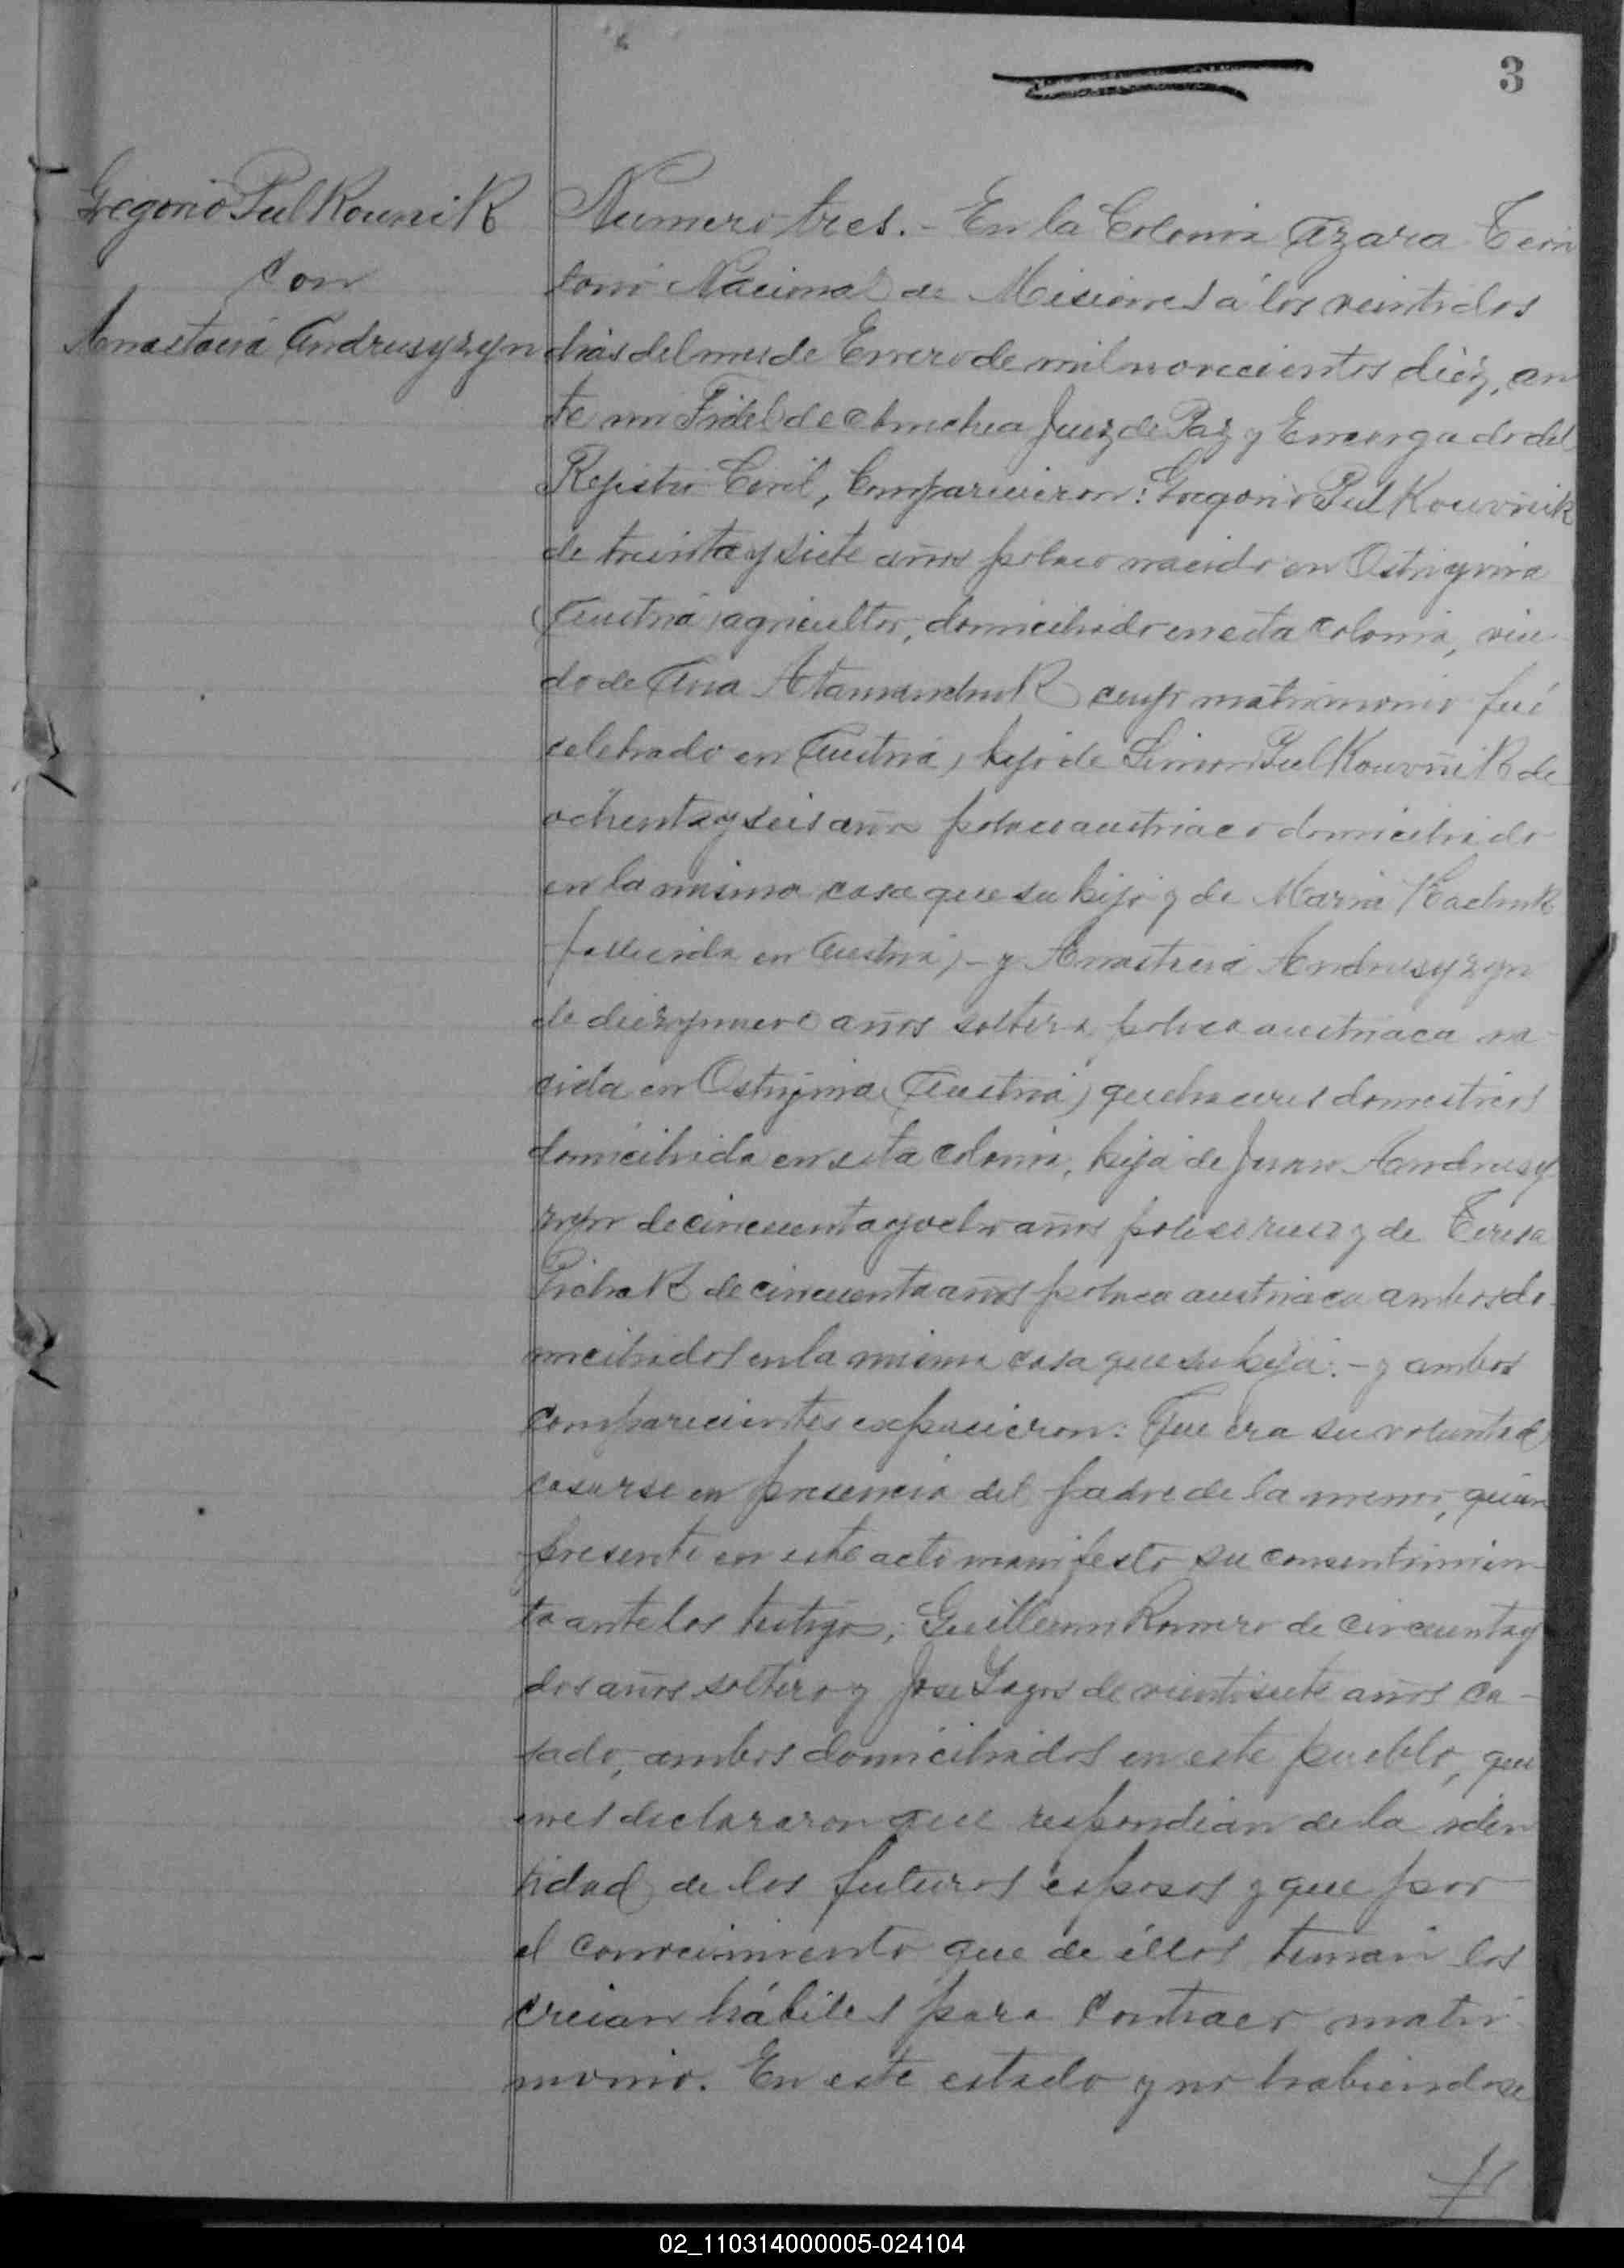 3
Gregorio PulKouniK
con
Anastacia Andrusyzyn
Numero tres.- En la Colonia Azara Terri
torio Nacional de Misiones á los veintidos
dias del mes de Enero de mil novecientos diéz, an
te mi Fidel de Juez de Paz y Encargado del
Registro Civil, Comparecieron: Gregorio PulKouvnik
de treinta y siete años polaco nacido en
(Austria) agricultor, domiciliado en esta colonia, viu
do de Ana cuyo matrimonio fué
celebrado en Austria, hijo de Simon PulKouvniK de
ochenta y seis años polaco austriaco domiciliado
en la misma casa que su hijo y de Maria
fallecida en Austria,- y Anastacia Andrusyzyn
de diez y nueve años soltera polaca austriaca na
cida en (Austria) quehaceres domesticos
domiciliada en esta colonia, hija de Juan Andrusy
zyn de cincuenta y ocho años polaco ruso y de Teresa
de cincuenta años polaca austriaca ambos do
miciliados en la misma casa que su hija.- y ambos
comparecientes expusieron: Que era su voluntad
casarse en presencia del padre de la menor, quien
presente en este acto manifesto su consentimien
to ante los testigos, Guillermo Romero de cincuenta y
dos años soltero y Jose Lagos de veintisiete años ca-
sado, ambos domiciliados en este pueblo, qui
enes declararon que respondian de la iden
tidad de los futuros esposos y que por
el conocimiento que de éllos tenian los
creian hábiles para contraer matri
monio. En este estado y no habiendose
02_110314000005-024104